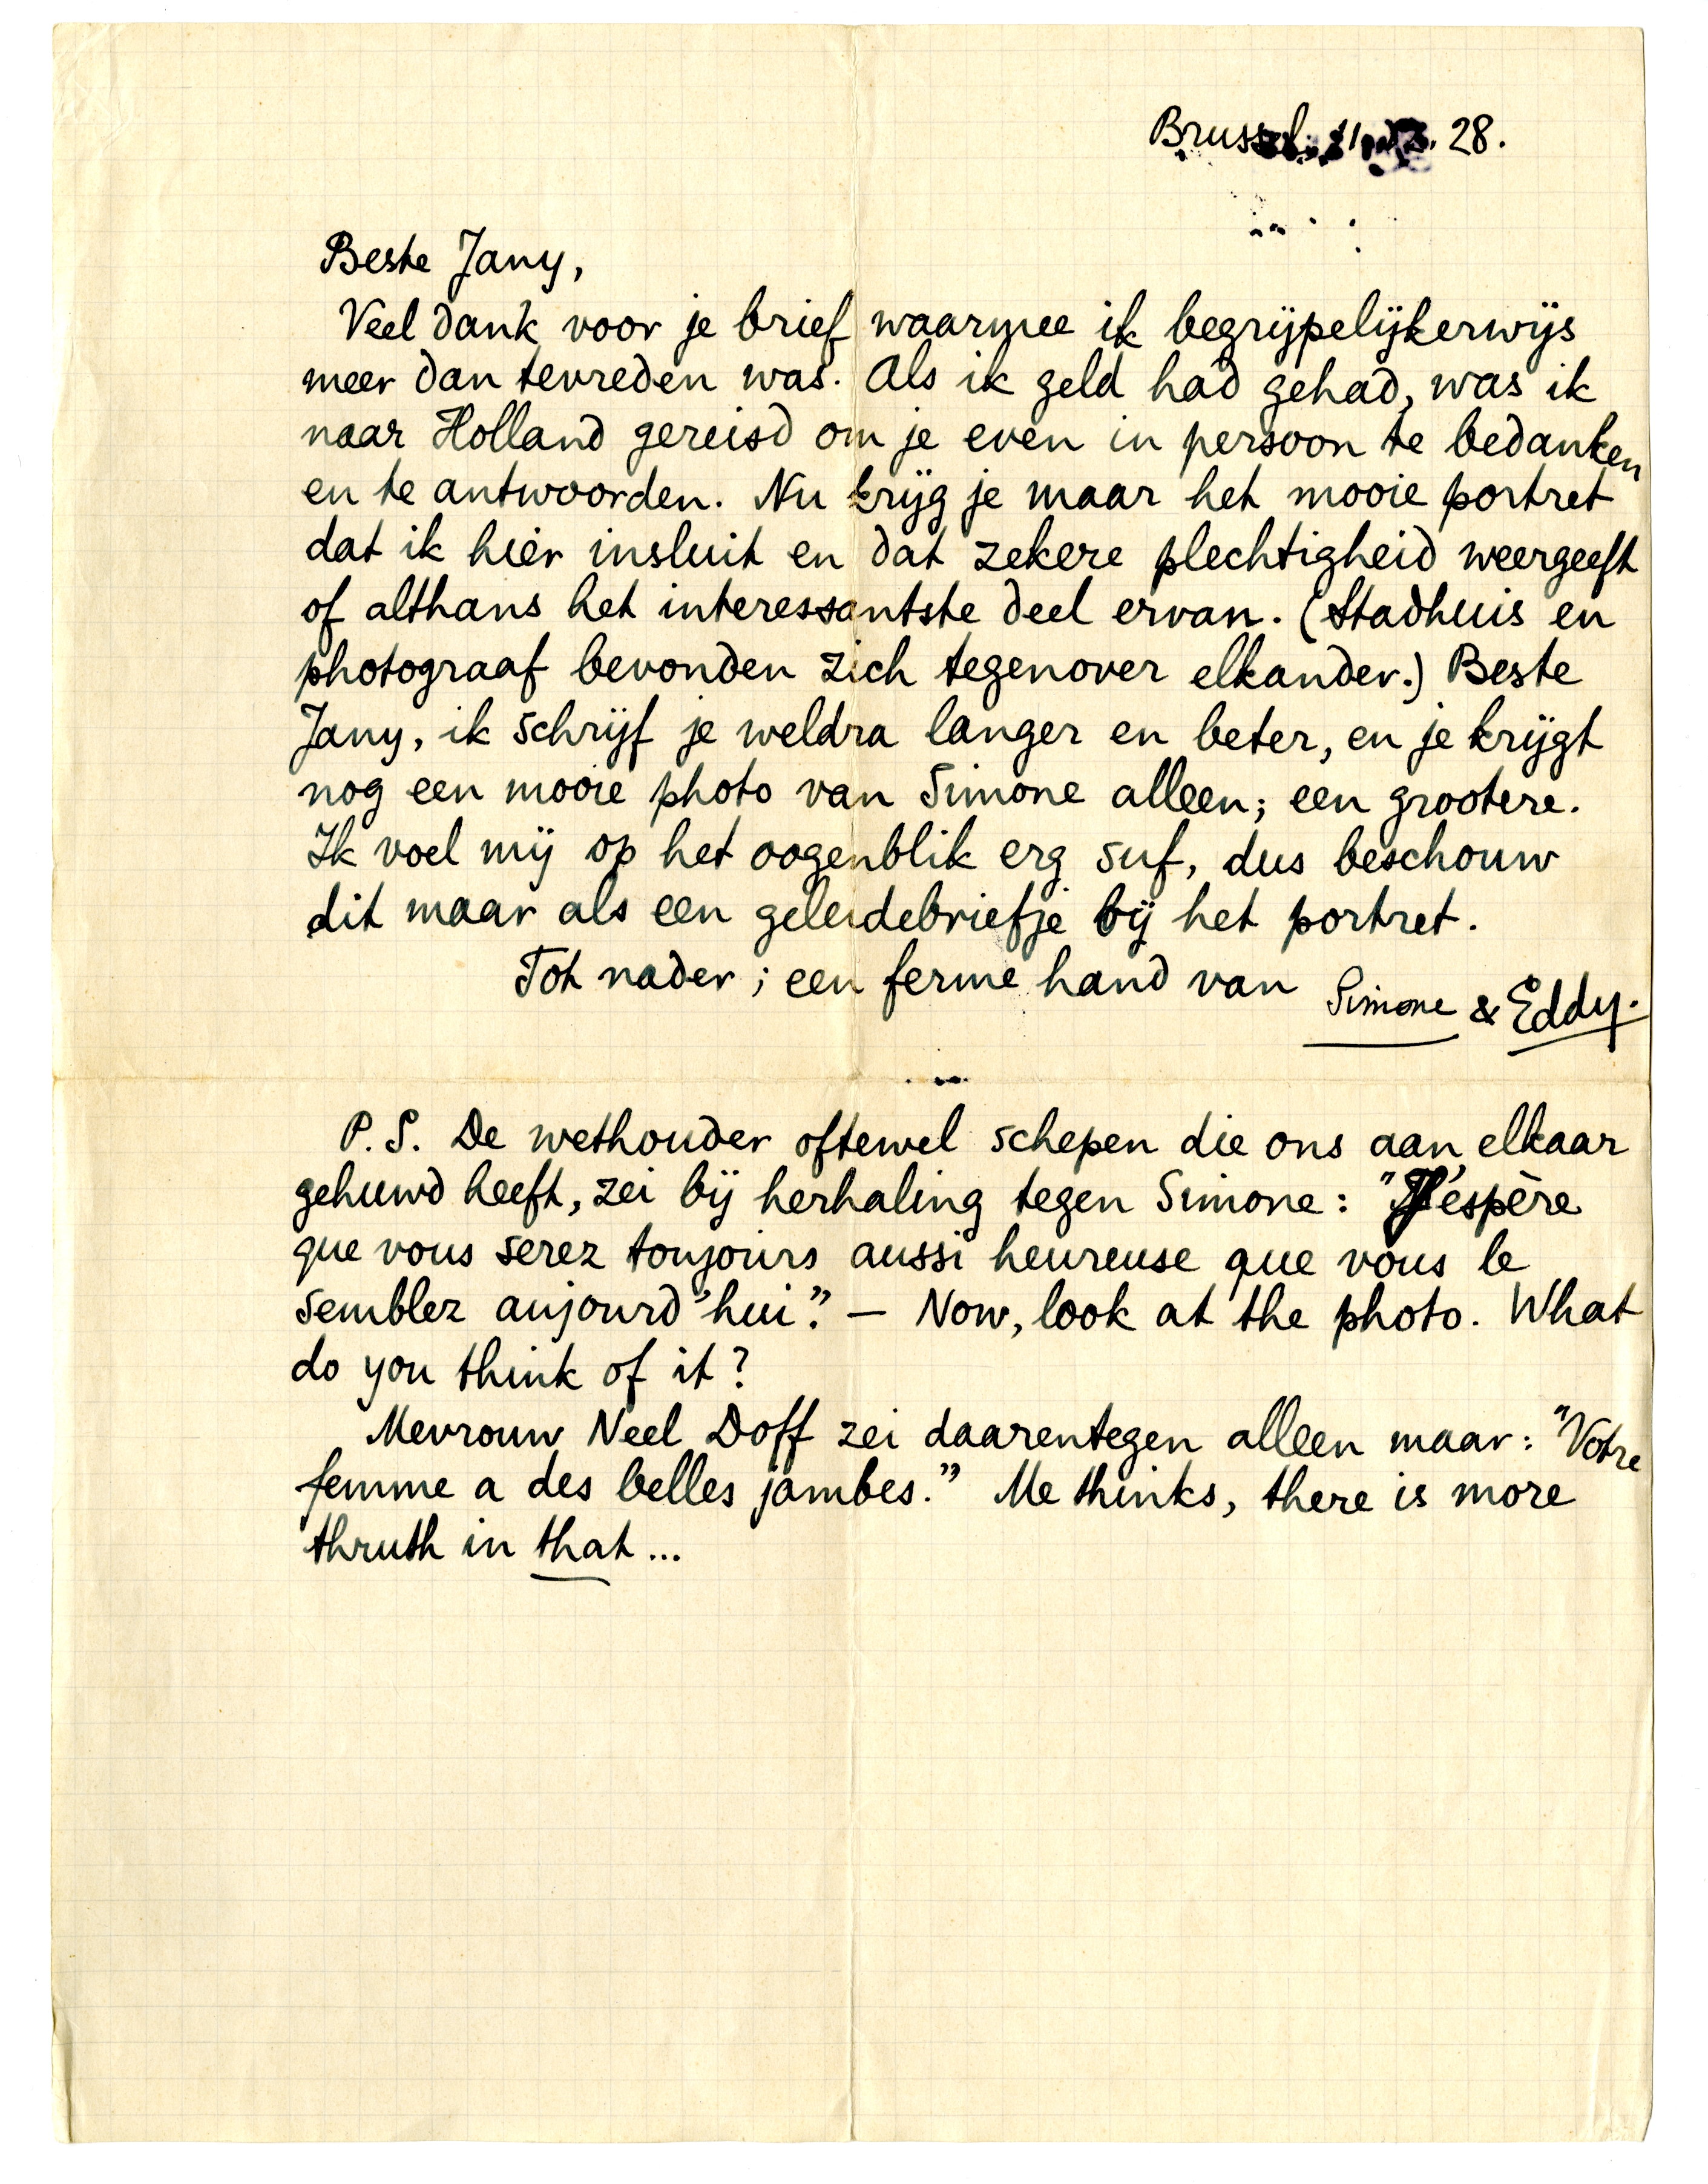 Brussel, 28.
Beste Jany,
Veel dank voor je brief waarmee ik begrijpelijkerwijs
meer dan tevreden was. Als ik geld had gehad, was ik
naar Holland gereisd om je even in persoon te bedanken
en te antwoorden. Nu krijg je maar het mooie portret
dat ik hier insluit en dat zekere plechtigheid weergeeft
of althans het interessantste deel ervan. (Stadhuis en
photograaf bevonden zich tegenover elkander.) Beste
Jany, ik schrijf je weldra langer en beter, en je krijgt
nog een mooie photo van Simone alleen; een grootere.
Ik voel mij op het oogenblik erg suf, dus beschouw
dit maar als een geleidebriefje bij het portret.
Tot nader; een ferme hand van Simone & Eddy.
P.S. De wethouder oftewel schepen die ons aan elkaar
gehuwd heeft, zei bij herhaling tegen Simone: "J'espère
que vous serez toujours aussi heureuse que vous le
semblez aujourd'hui." — Now, look at the photo. What
do you think of it?
Mevrouw Neel Doff zei daarentegen alleen maar: "Votre
femme a des belles jambes." Me thinks, there is more
thruth in that...